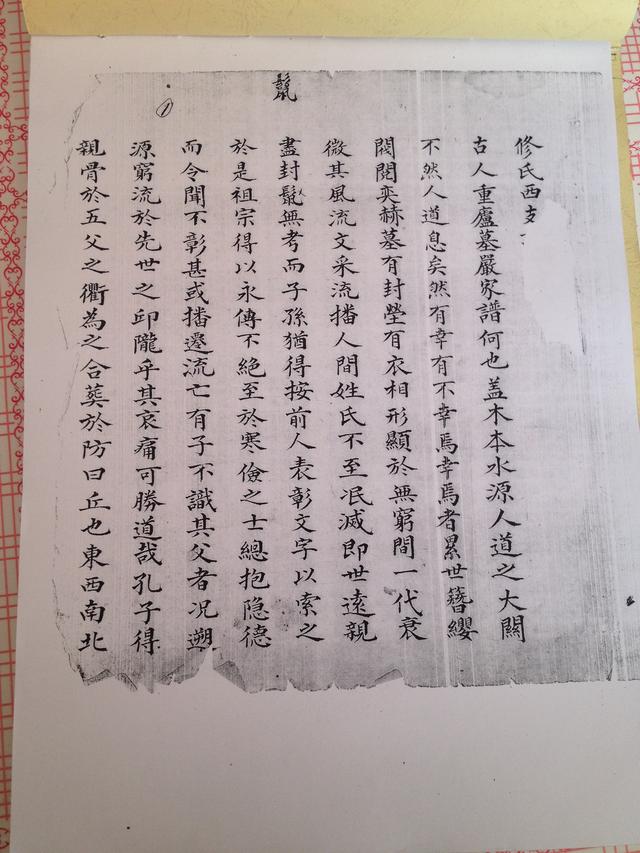 鬣
1
修氏西支
古人重廬墓嚴家譜何也盖木本水源人道之大關
不然人道息矣然有幸有不幸焉幸焉者累世簪纓
閥閱奕赫墓有封塋有衣相形顯於無窮間一代衰
微其風流文采流播人間姓氏不至冺滅即世遠親
盡封鬣無考而子孫猶得按前人表彰文字以索之
於是祖宗得以永傳不絕至於寒儉之士總抱隐德
而令聞不彰甚或播遷流亡有子不識其父者况遡
源窮流於先世之邱隴乎其哀痛可勝道哉孔子得
親骨於五父之衢為之合葬於防曰丘也東西南北